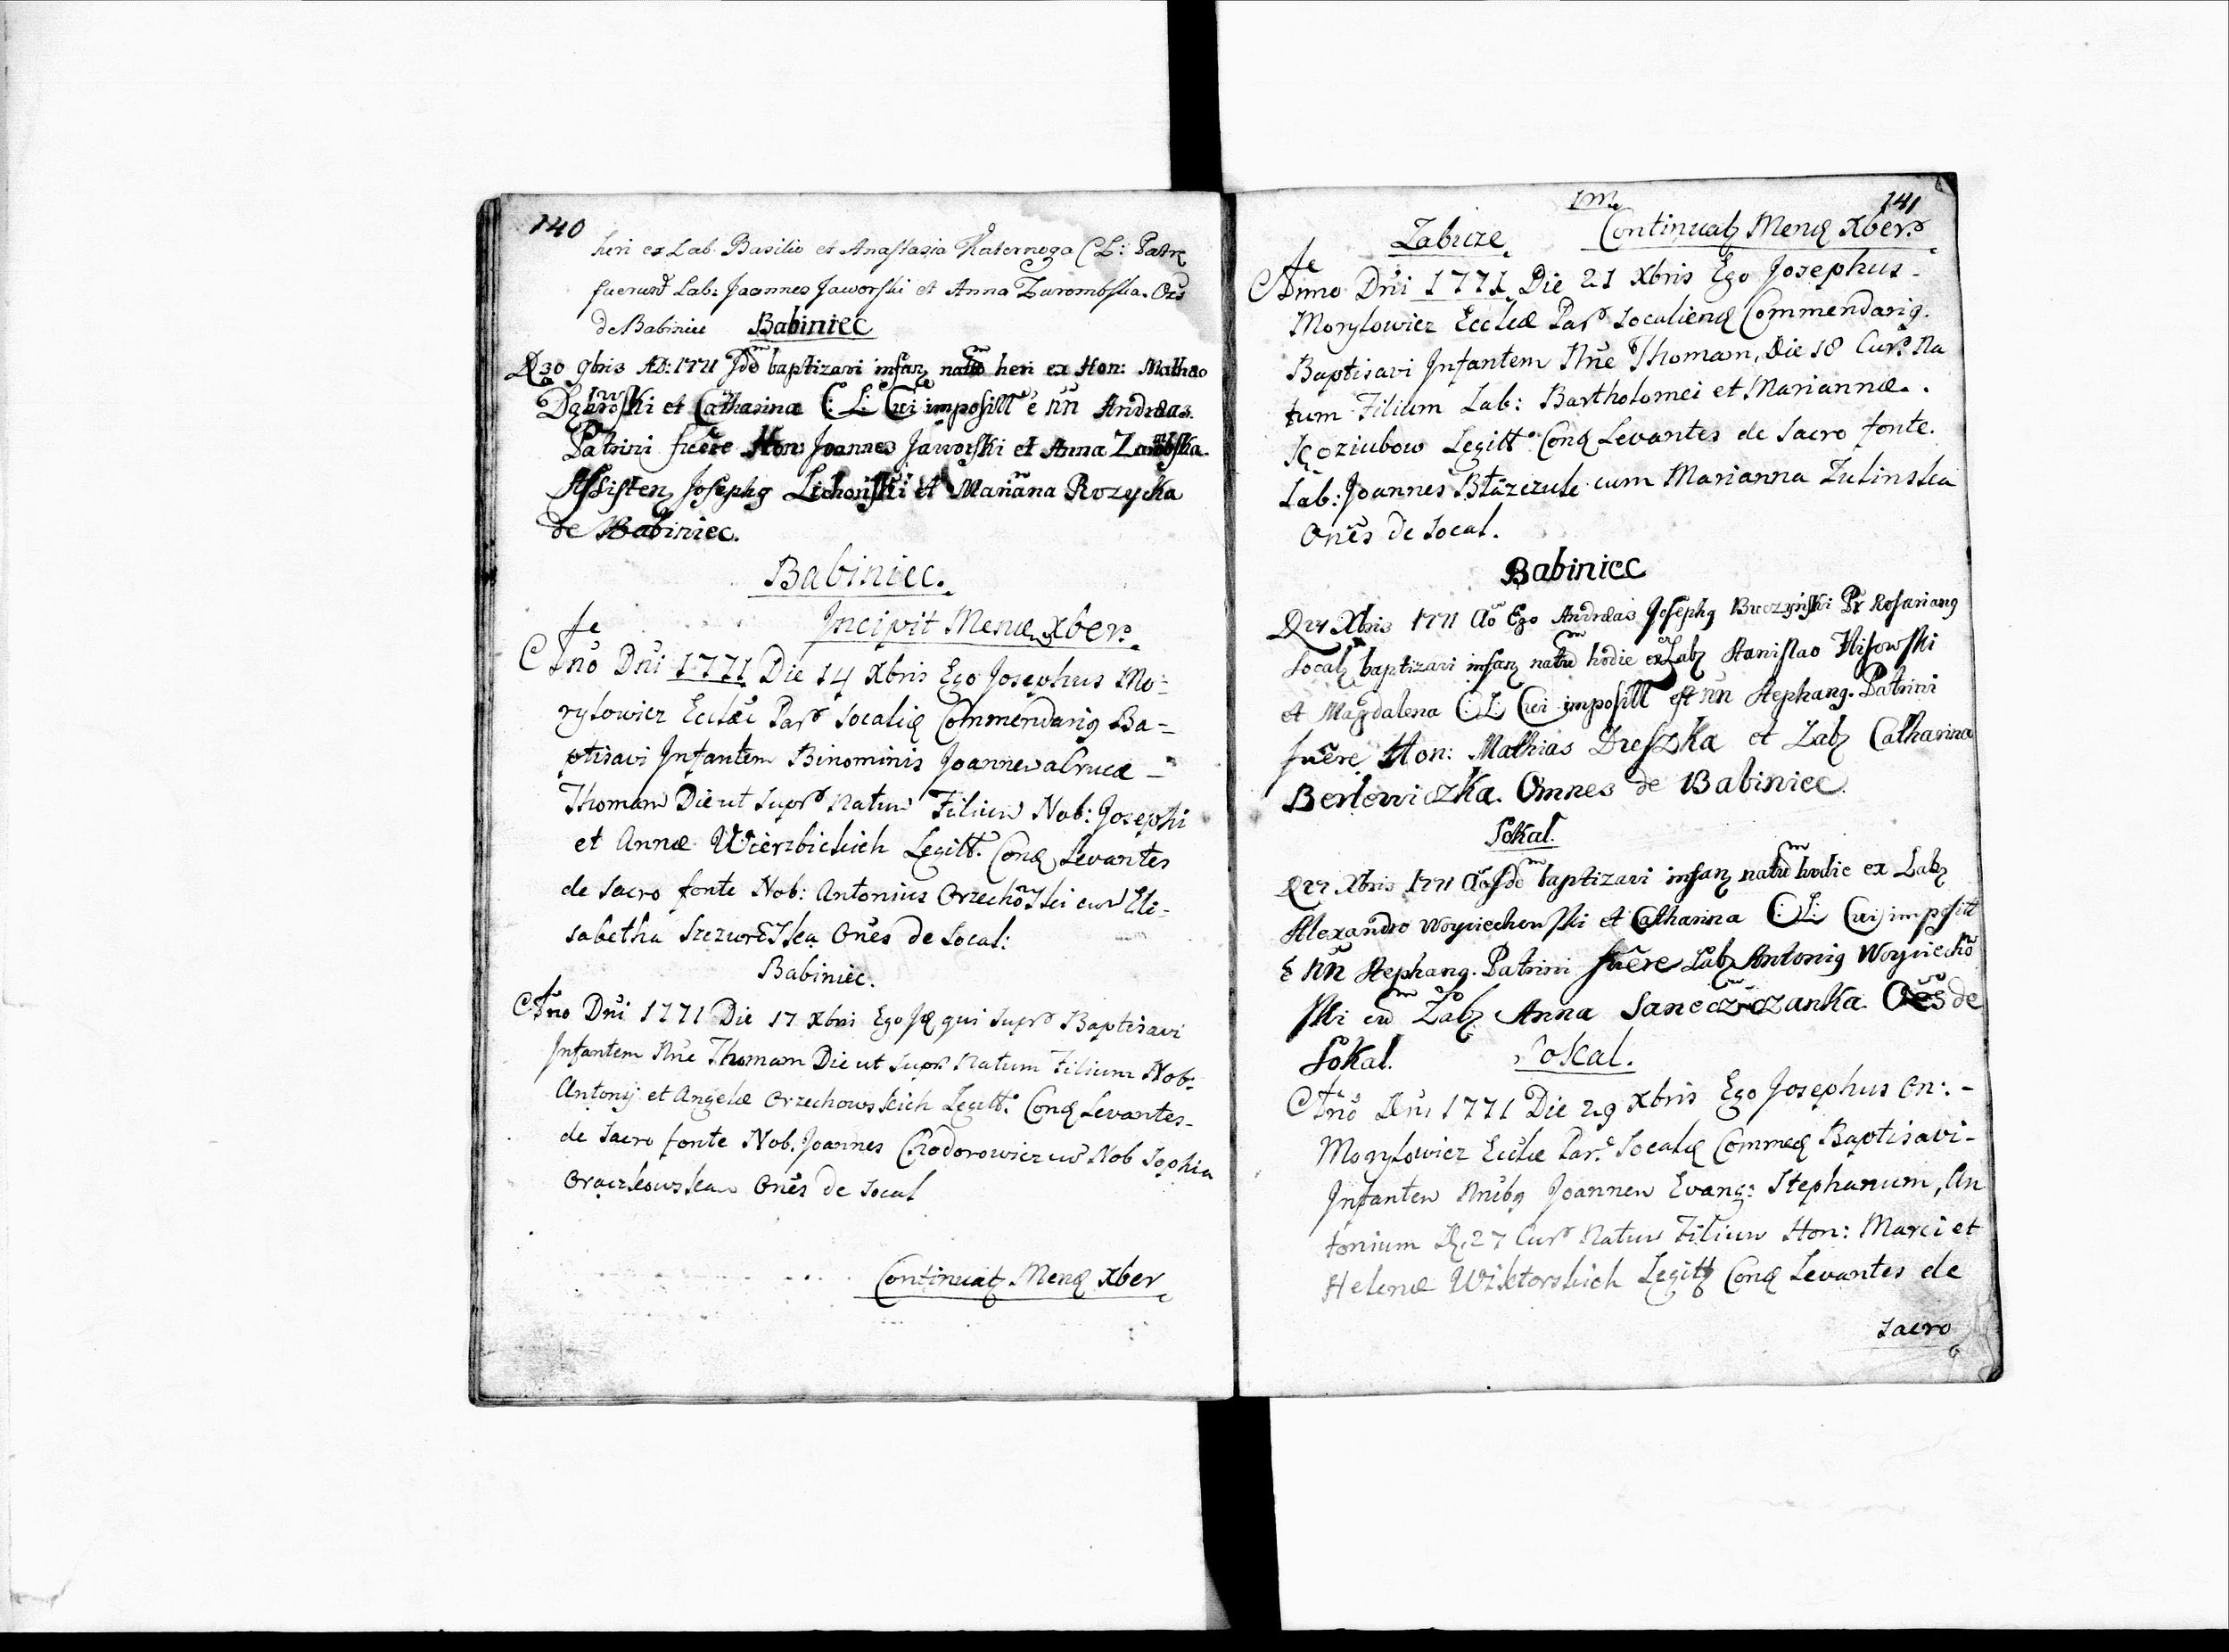 140
heri ex Lab. Basilio et Anastasia Katernoga C L: Patr
fuerunt Lab: Joannes Jaworski et Anna Zarombska. Oēs
de Babiniec Babiniec
D 30 9bris AD: 1771 Jdē baptizavi infan natū heri ex Hon: Mathæo
et Catharinæ C: L: Cui imposītū ē nn Andræas.
Patrini fuēre Hon: Joannes Jaworski et Anna
Assisten Joseph9 et Mariāna Rozycka
de Babiniec.
Babiniec.
Incipit Mens Xber.
Ano Dni 1771 Die 14 Xbris Ego Josephus Mo-
rylowicz Eccłæ Par Socaliē Commendari9 Ba-
ptisavi Infantem Binominis Joannem a Cruce -
Thomam Die ut supr natum Filium Nob: Josephi
et Annæ Wierzbickich Legitt. Con Levantes
de Sacro fonte Nob: Antonius Orzechoski cum Eli-
sabetha Onēs de Socal:
Babiniec.
Ano Dni 1771 Die 17 Xbris Ego Id qui supr Baptisavi
Infantem Nne Thomam Die ut supr Natum Filium Nob:
Antonÿ et Angelæ Orzechowskich Legitt: Con Levantes-
de Sacro fonte Nob. Joannes Chodorowicz cum Nob Sophia
Onēs de Socal
Continuat Mens Xber
1m
141
Zabuze Continuat Mens Xber.
Anno Dni 1771 Die 21 Xbris Ego Josephus -
Morylowicz Eccłæ Par Socaliens Commendari9.
Baptisavi Infantem Nne Thomam, Die 18 Cur. Na
tum Filium Lab: Bartholomei et Mariannæ. .
Koziubow Legitt. Con Levantes de Sacro fonte.
Lab: Joannes Błazczuk cum Marianna Zulinska
Onēs de Socal.
Babiniec
D Xbris 1771 Ao Ego Andræas Joseph9 Buczyński Pr Rosarian9
Socal baptizavi infan natū hodie ex Lab Stanislao
et Magdalena C: L: Cui imposītt est nn Stephan9. Patrini
fuēre Hon: Mathias Dreszka et Lab Catharina
Berlewiczka. Omnes de Babiniec.
Sokal.
D 27 Xbris 1771 Ao Jdē baptizavi infan natū hodie ex Lab
Alexandro Woyciechowski et Catharina C: L: Cui imposītt
ē nn Stephan9. Patrini fuēre Lab Antoni9 Woyciecho
ski cū Lab Anna Oēs de
Sokal. Sokal.
Ano Dni 1771 Die 29 Xbris Ego Josephus On: -
Morylowicz Eccłæ Par. Socal Commen Baptisavi-
Infantem Nnib9 Joannem Evang: Stephanum, An
tonium D. 27 Cur Natum Filium Hon: Marci et
Helenæ Wiktorskich Legitt Con Levantes de
Sacro